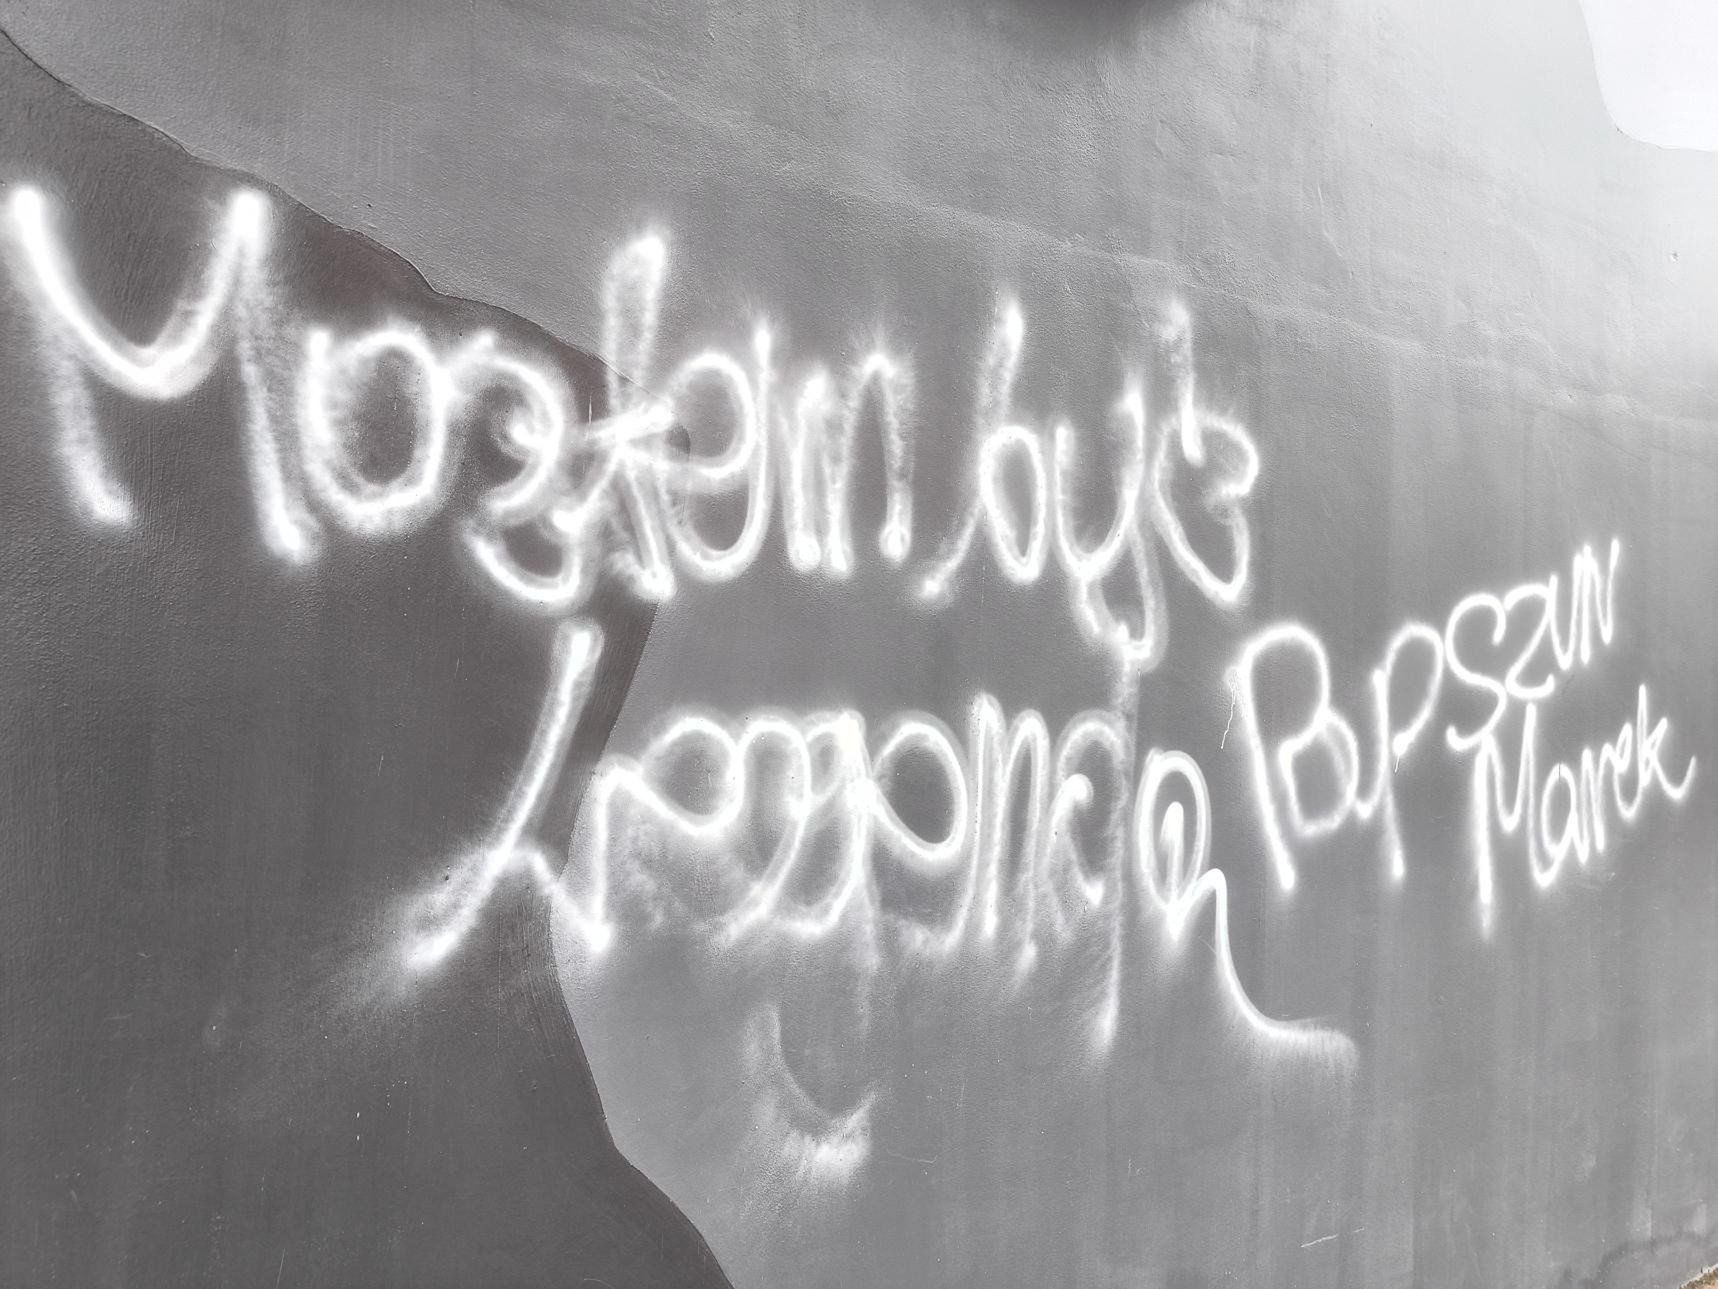 Mogłem być
Legendą
Popszun
Marek